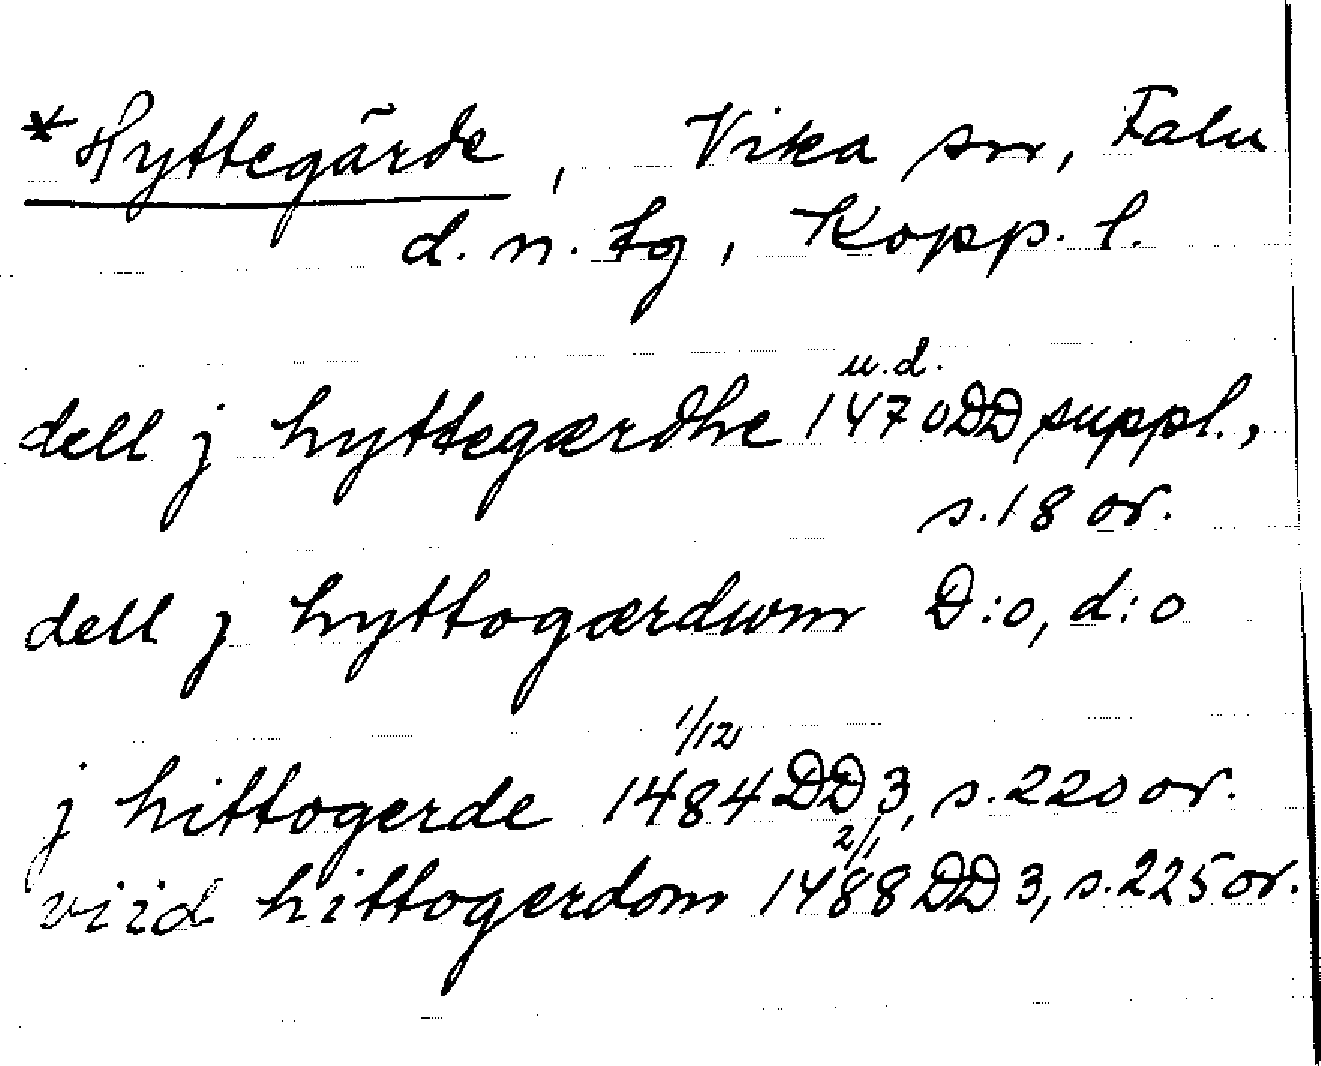 *Hyttegärde, Vika sn, Falu
d.n. tg, Kopp. l.
u.d.
dell j hyttegærdhe 1470 DD suppl.,
s. 18 or.
dell j hyttogærdwm D:o, d:o
1/12
j hittogerde 1484 DD 3, s. 220 or.
2/1
viid hittogerdom 1488 DD 3, s. 225 or.